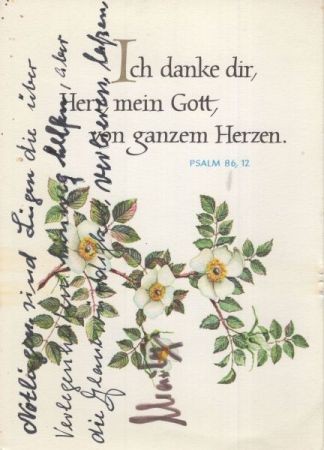 Ich danke dir,
Herr mein Gott,
von ganzem Herzen.
PSALM 86, 12
Notlügen sind Lügen die über
hinweg helfen, aber
die verlieren laßen